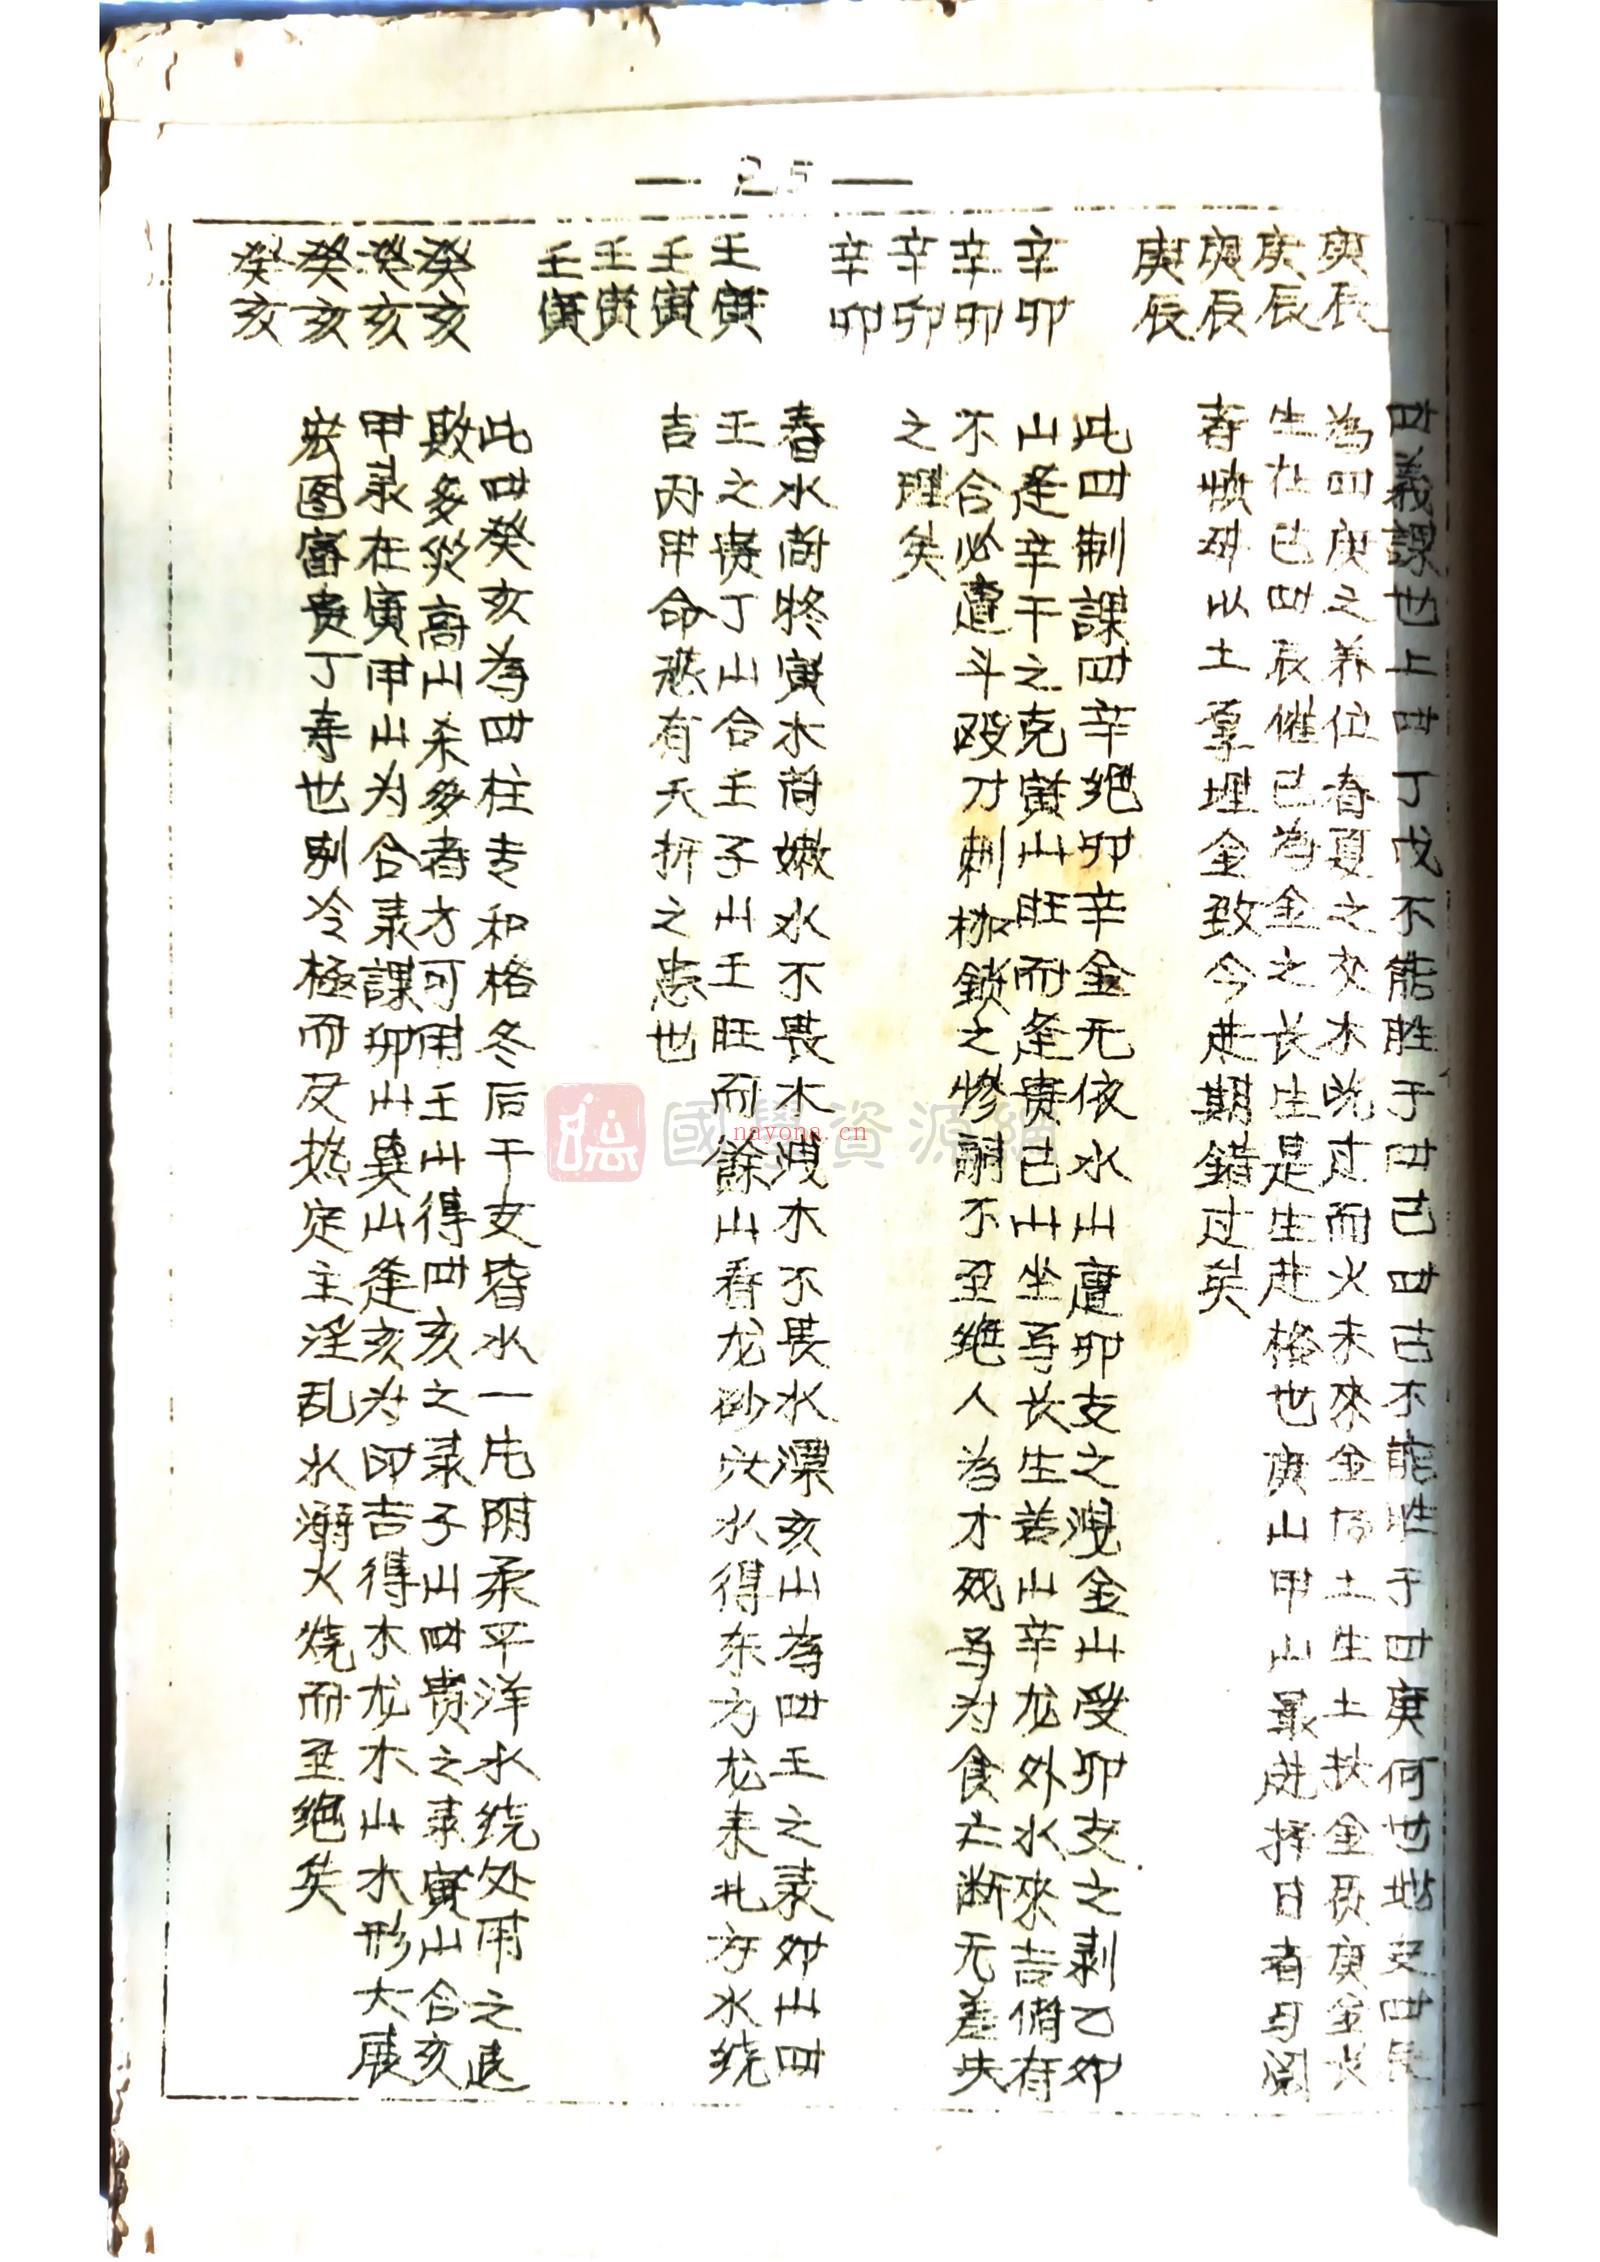 — 25 —
庚辰
庚辰
庚辰
庚辰
四義課也上四丁戊不能胜于四己四己不能胜于四庚何也地支四辰
為四庚之养位春夏之交木既过而火未來金局土生土扶金展庚金长
生在巳四辰催巳為金之长生是生赴格也庚山甲山最进择日者毋阅
春慎哉以土羣埋金致今进期錯过矣
辛卯
辛卯
辛卯
辛卯
此四制課四辛绝卯辛金无依水山遭卯支之洩金山受卯支之剥乙卯
山逢辛干之克寅山旺而逢贵巳山坐 长生若山辛龙外水來吉備有
不合必遭斗殴刀刺枷鎖之惨嗣不至绝人為才死 为食亡断无差失
之理矣
壬寅
壬寅
壬寅
壬寅
春水尚终寅木尚嫩水不畏木洩木不畏水漂亥山為四壬之录卯山四
壬之贵丁山合壬子山壬旺而餘山看龙砂穴水得东方龙来北方水绕
吉丙甲命恐有夭折之患也
癸亥
癸亥
癸亥
癸亥
此四癸亥為四柱专和格冬后干支皆水一片阴柔平洋水绕处用之退
敗多災高山杀多者方可用壬山得四亥之录子山四贵之录寅山合亥
甲录在寅甲山为合录課卯山巽山逢亥为印吉得木龙木山木形大展
宏图富贵丁寿也 冷極而反热定主淫乱水溺火烧而至绝矣
國學資源網
nayona.cn